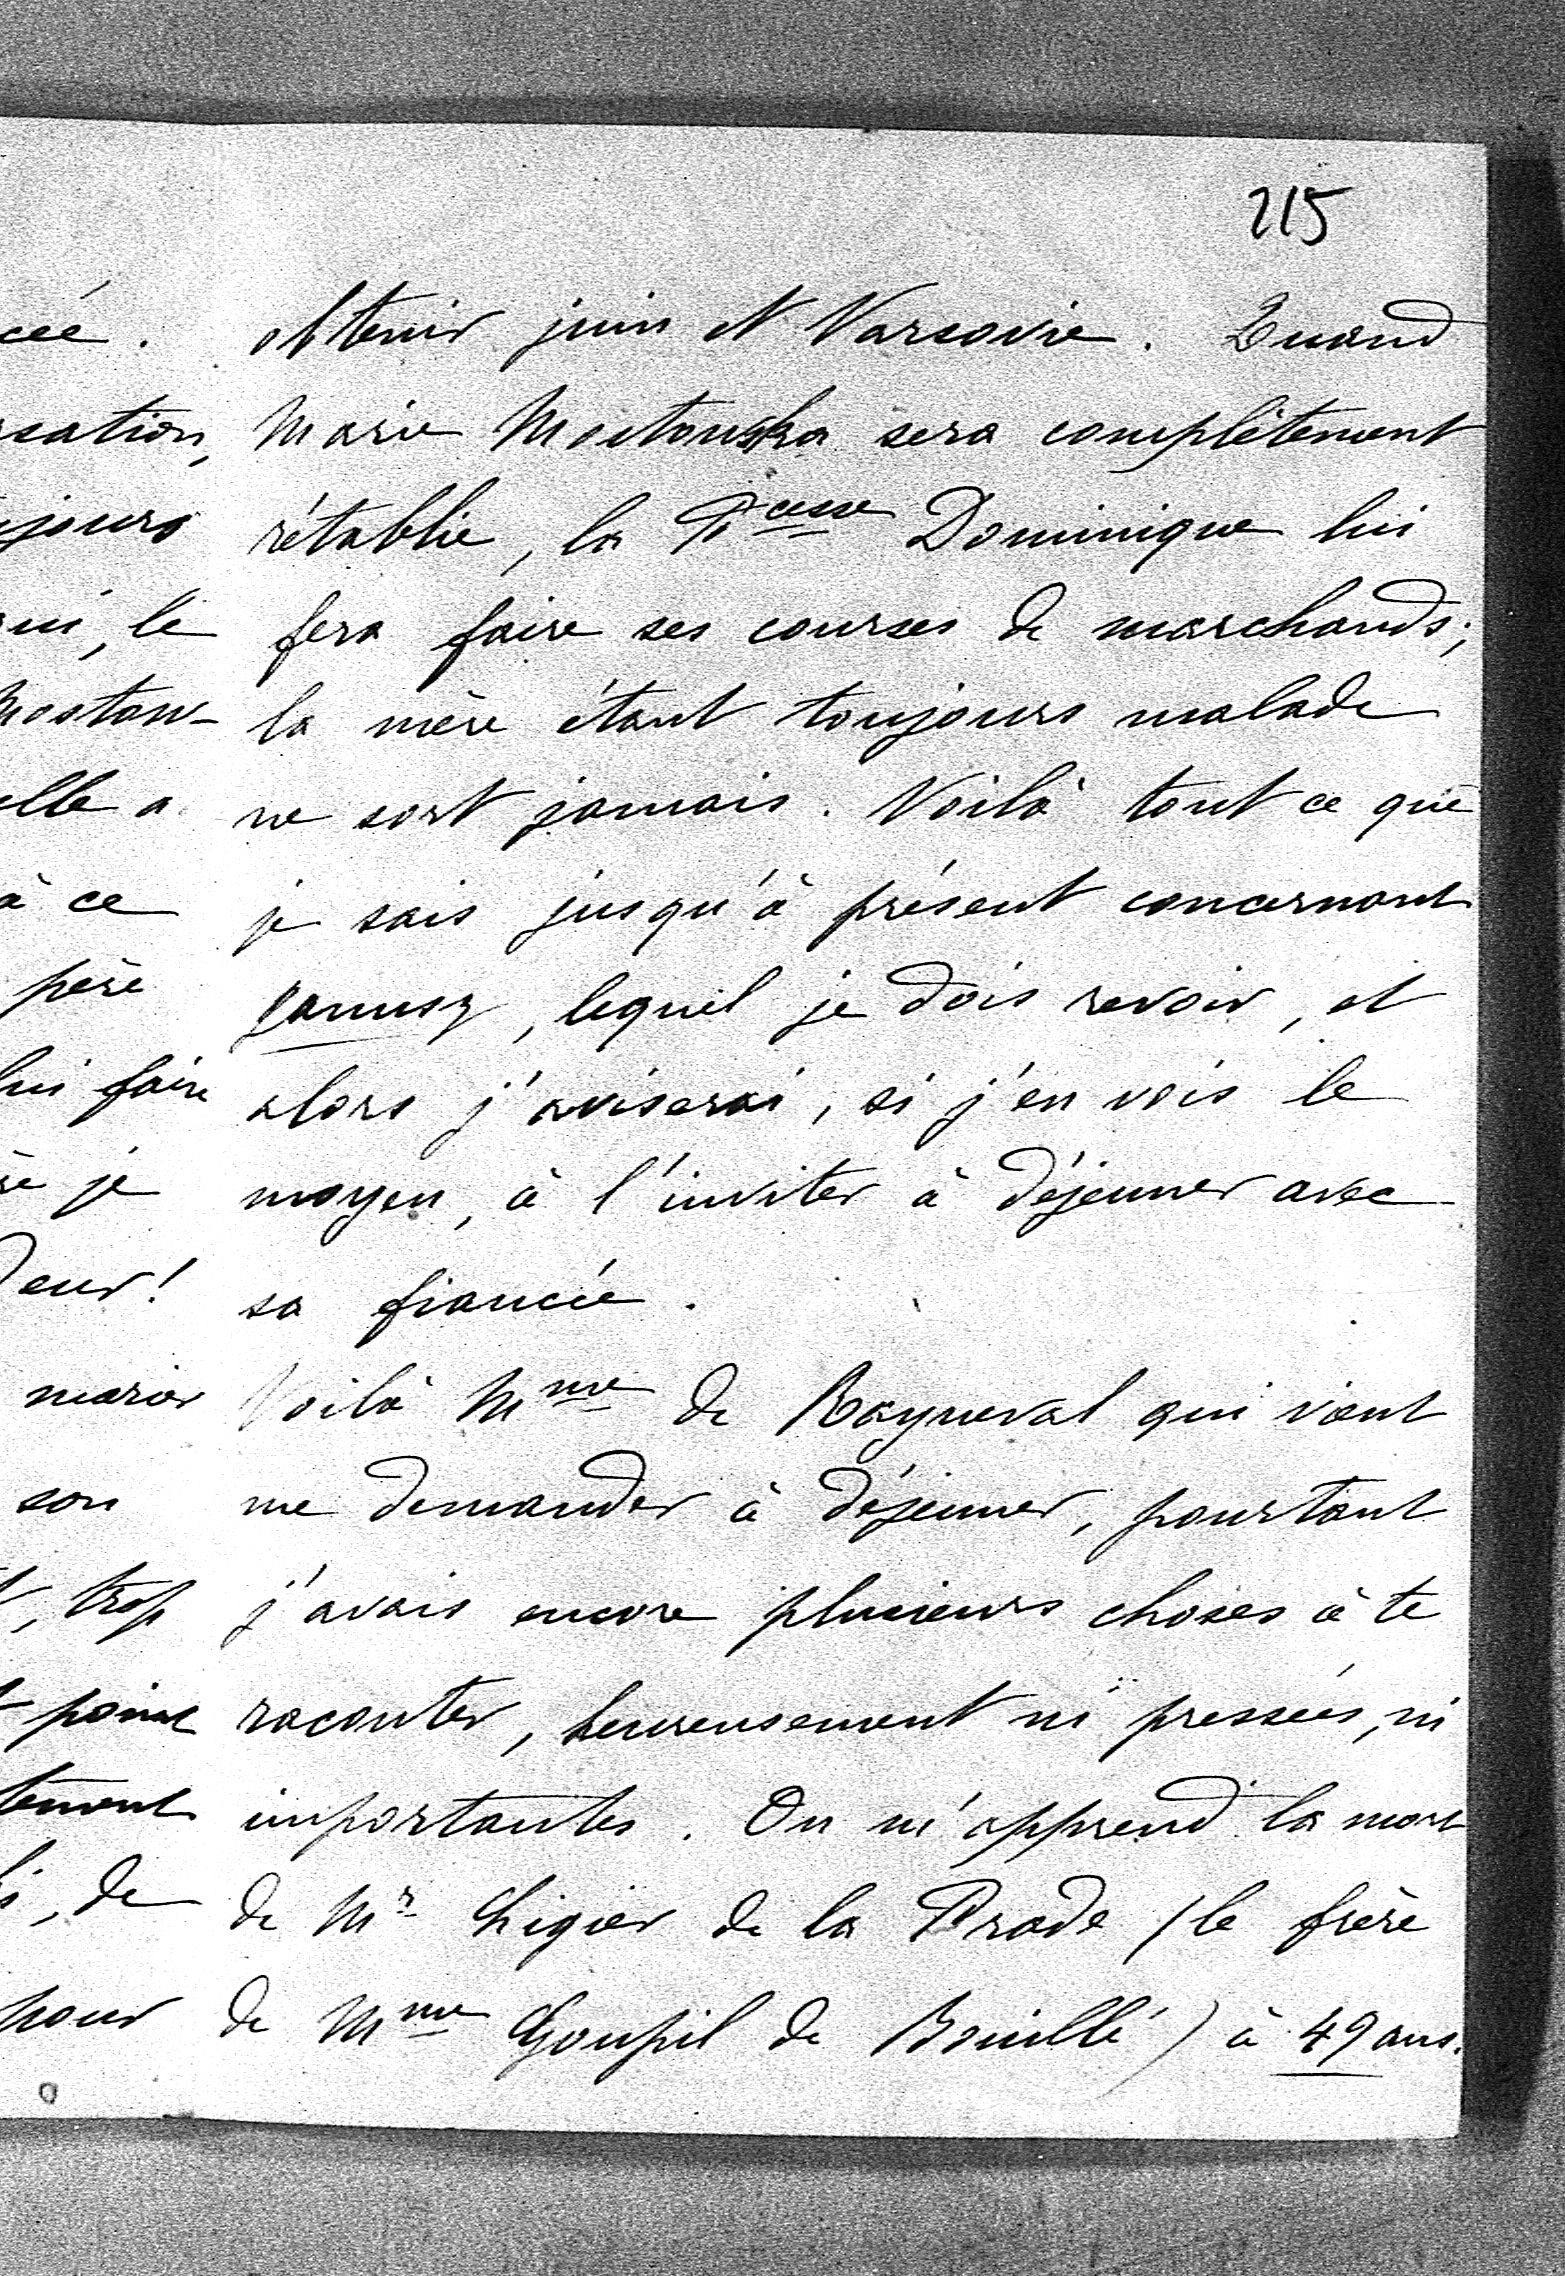 215
obtenir juin et Varsovie. Quand
Marie Mostouska sera complêtement
rétablie, la Pcesse Dominique lui
fera faire ses courses de marchands;
la mère étant toujours malade
ne sort jamais. Voilà tout ce que
je sais jusqu'à présent concernant
Janusz, lequel je dois revoir, et
alors j'aviserai, si j'en vois le
moyen, à l'inviter à déjeuner avec
sa fiancée.
Voilà Mme de Rayneval qui vient
me demander à déjeuner, pourtant
j'avais encore plusieurs choses à te
raconter, heureusement ni pressées, ni
importantes. On m'apprend la mort
de Mr Ligier de la Prade (le frère
de Mme Goupil de Bouillé) à 49 ans.
cée.
sation,
jours
ui, le
Mostow-
elle a
à ce
père
lui faire
je
deur!
marier
son
, trop
point
tement
, de
pour